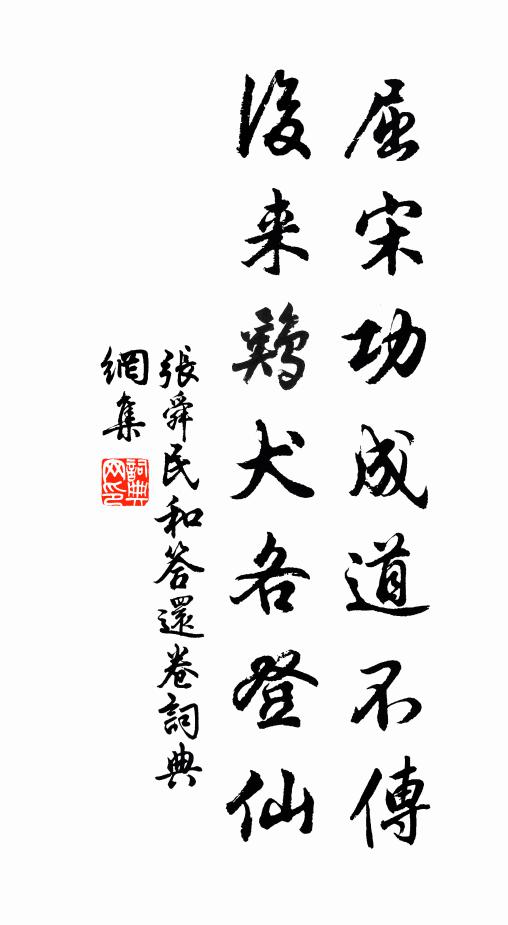 屈宋功成道不傳
後来鷄犬各登仙
張舜民和答還卷詞典
網集
詞典網印